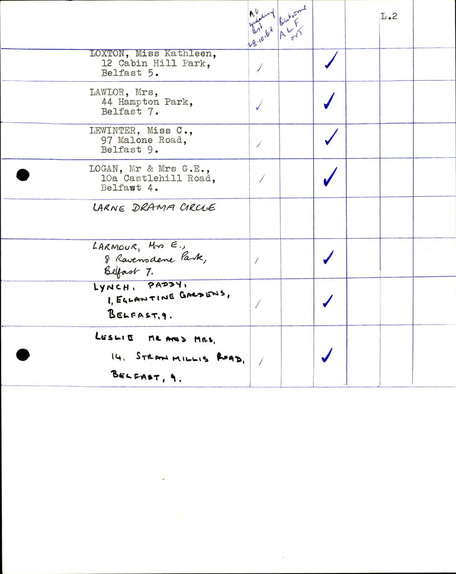 L.2
As
list
28.10.61
Autumn
ALF
LOXTON, Miss Kathleen,
12 Cabin Hill Park,
Belfast 5.
LAWLOR, Mrs,
44 Hampton Park,
Belfast 7.
LEWINTER, Miss C.,
97 Malone Road,
Belfast 9.
LOGAN, Mr & Mrs G.E.,
10a Castlehill Road,
Belfast 4.
LARNE DRAMA CIRCLE
LARMOUR, Mrs E.,
8 Ravensdene Park,
Belfast 7.
LYNCH, PADDY,
1, EGLANTINE GARDENS,
BELFAST, 9.
LESLIE MR AND MRS,
14. STRANMILLIS ROAD,
BELFAST, 9.